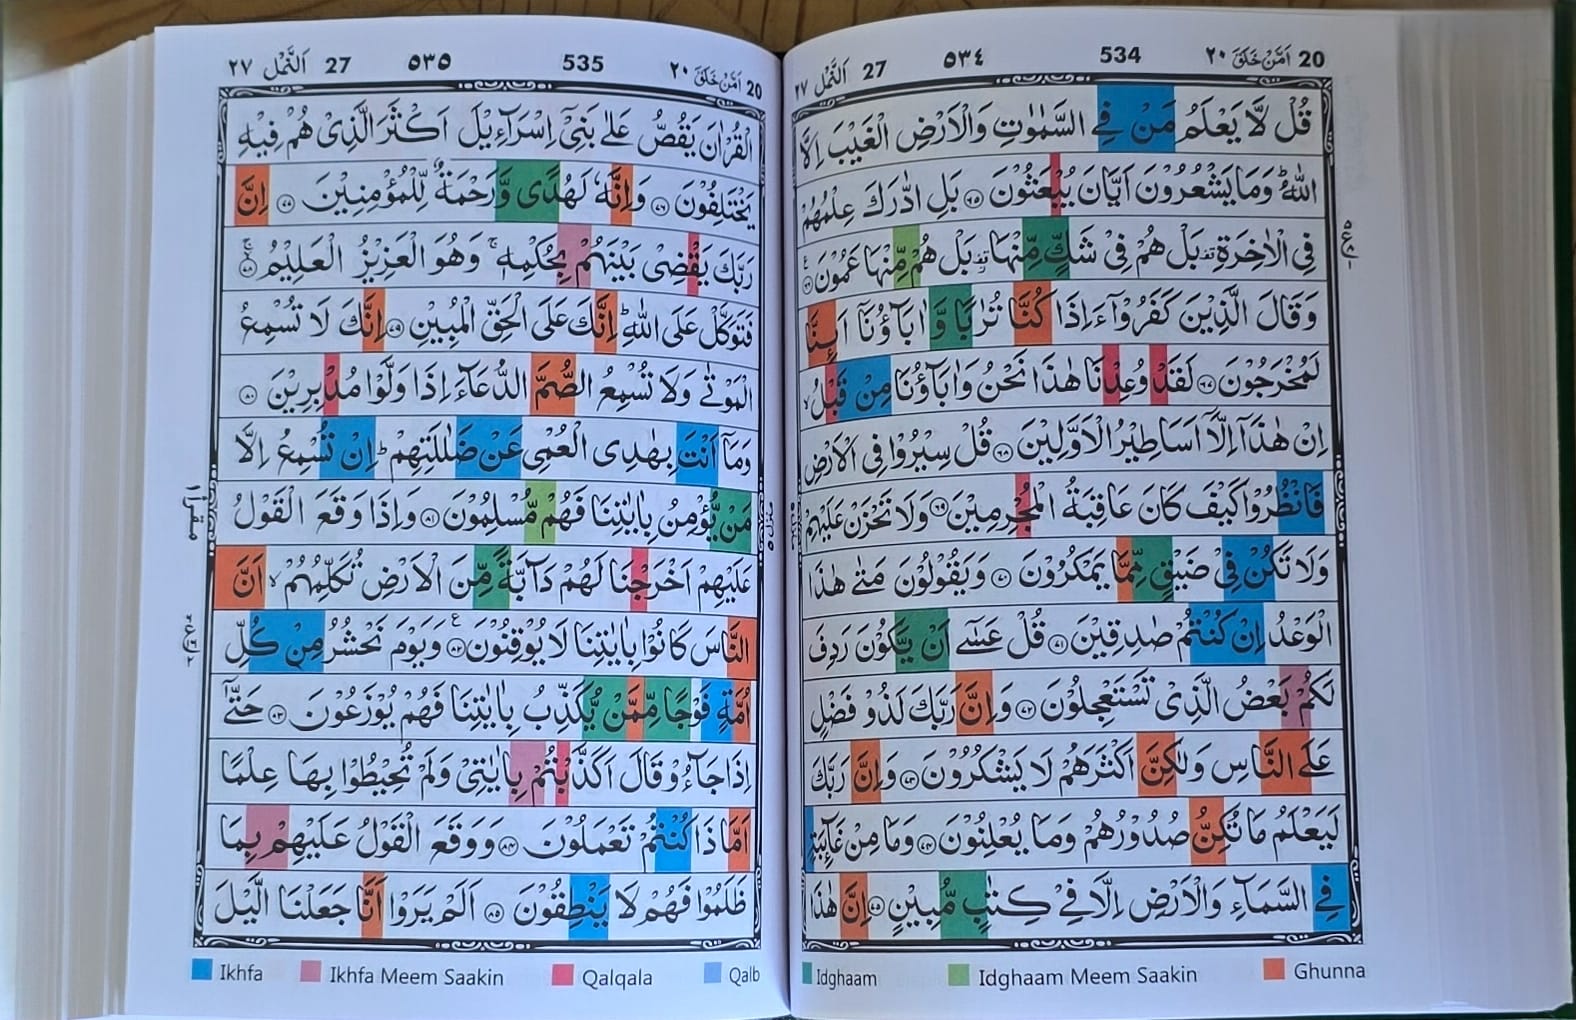 20 اَمَّنْ خَلَقَ ٢٠ 534 ٥٣٤ 27 اَلنَّمْل ٢٧
قُلْ لَّا يَعْلَمُ مَنْ فِي السَّمٰوٰتِ وَالْاَرْضِ الْغَيْبَ اِلَّا
اللّٰهُ ؕ وَمَا يَشْعُرُوْنَ اَيَّانَ يُبْعَثُوْنَ ﴿٦٥﴾ بَلِ ادّٰرَكَ عِلْمُهُمْ
فِي الْاٰخِرَةِ بَلْ هُمْ فِيْ شَكٍّ مِّنْهَا بَلْ هُمْ مِّنْهَا عَمُوْنَ ﴿٦٦﴾
وَقَالَ الَّذِيْنَ كَفَرُوْۤا ءَاِذَا كُنَّا تُرٰبًا وَّاٰبَآؤُنَاۤ اَئِنَّا
لَمُخْرَجُوْنَ ﴿٦٧﴾ لَقَدْ وُعِدْنَا هٰذَا نَحْنُ وَاٰبَآؤُنَا مِنْ قَبْلُ ۙ
اِنْ هٰذَاۤ اِلَّاۤ اَسَاطِيْرُ الْاَوَّلِيْنَ ﴿٦٨﴾ قُلْ سِيْرُوْا فِي الْاَرْضِ
فَانْظُرُوْا كَيْفَ كَانَ عَاقِبَةُ الْمُجْرِمِيْنَ ﴿٦٩﴾ وَلَا تَحْزَنْ عَلَيْهِمْ
وَلَا تَكُنْ فِيْ ضَيْقٍ مِّمَّا يَمْكُرُوْنَ ﴿٧٠﴾ وَيَقُوْلُوْنَ مَتٰى هٰذَا
الْوَعْدُ اِنْ كُنْتُمْ صٰدِقِيْنَ ﴿٧١﴾ قُلْ عَسٰۤى اَنْ يَّكُوْنَ رَدِفَ
لَكُمْ بَعْضُ الَّذِيْ تَسْتَعْجِلُوْنَ ﴿٧٢﴾ وَاِنَّ رَبَّكَ لَذُوْ فَضْلٍ
عَلَى النَّاسِ وَلٰكِنَّ اَكْثَرَهُمْ لَا يَشْكُرُوْنَ ﴿٧٣﴾ وَاِنَّ رَبَّكَ
لَيَعْلَمُ مَا تُكِنُّ صُدُوْرُهُمْ وَمَا يُعْلِنُوْنَ ﴿٧٤﴾ وَمَا مِنْ غَآئِبَةٍ
فِي السَّمَآءِ وَالْاَرْضِ اِلَّا فِيْ كِتٰبٍ مُّبِيْنٍ ﴿٧٥﴾ اِنَّ هٰذَا
Idghaam Idghaam Meem Saakin Ghunna
20 اَمَّنْ خَلَقَ ٢٠ 535 ٥٣٥ 27 اَلنَّمْل ٢٧
الْقُرْاٰنَ يَقُصُّ عَلٰى بَنِيْۤ اِسْرَآءِيْلَ اَكْثَرَ الَّذِيْ هُمْ فِيْهِ
يَخْتَلِفُوْنَ ﴿٧٦﴾ وَاِنَّهٗ لَهُدًى وَّرَحْمَةٌ لِّلْمُؤْمِنِيْنَ ﴿٧٧﴾ اِنَّ
رَبَّكَ يَقْضِيْ بَيْنَهُمْ بِحُكْمِهٖ ۚ وَهُوَ الْعَزِيْزُ الْعَلِيْمُ ﴿٧٨﴾
فَتَوَكَّلْ عَلَى اللّٰهِ ؕ اِنَّكَ عَلَى الْحَقِّ الْمُبِيْنِ ﴿٧٩﴾ اِنَّكَ لَا تُسْمِعُ
الْمَوْتٰى وَلَا تُسْمِعُ الصُّمَّ الدُّعَآءَ اِذَا وَلَّوْا مُدْبِرِيْنَ ﴿٨٠﴾
وَمَاۤ اَنْتَ بِهٰدِي الْعُمْيِ عَنْ ضَلٰلَتِهِمْ ؕ اِنْ تُسْمِعُ اِلَّا
مَنْ يُّؤْمِنُ بِاٰيٰتِنَا فَهُمْ مُّسْلِمُوْنَ ﴿٨١﴾ وَاِذَا وَقَعَ الْقَوْلُ
عَلَيْهِمْ اَخْرَجْنَا لَهُمْ دَآبَّةً مِّنَ الْاَرْضِ تُكَلِّمُهُمْ ۙ اَنَّ
النَّاسَ كَانُوْا بِاٰيٰتِنَا لَا يُوْقِنُوْنَ ﴿٨٢﴾ وَيَوْمَ نَحْشُرُ مِنْ كُلِّ
اُمَّةٍ فَوْجًا مِّمَّنْ يُّكَذِّبُ بِاٰيٰتِنَا فَهُمْ يُوْزَعُوْنَ ﴿٨٣﴾ حَتّٰۤى
اِذَا جَآءُوْ قَالَ اَكَذَّبْتُمْ بِاٰيٰتِيْ وَلَمْ تُحِيْطُوْا بِهَا عِلْمًا
اَمَّاذَا كُنْتُمْ تَعْمَلُوْنَ ﴿٨٤﴾ وَوَقَعَ الْقَوْلُ عَلَيْهِمْ بِمَا
ظَلَمُوْا فَهُمْ لَا يَنْطِقُوْنَ ﴿٨٥﴾ اَلَمْ يَرَوْا اَنَّا جَعَلْنَا الَّيْلَ
Ikhfa Ikhfa Meem Saakin Qalqala Qalb